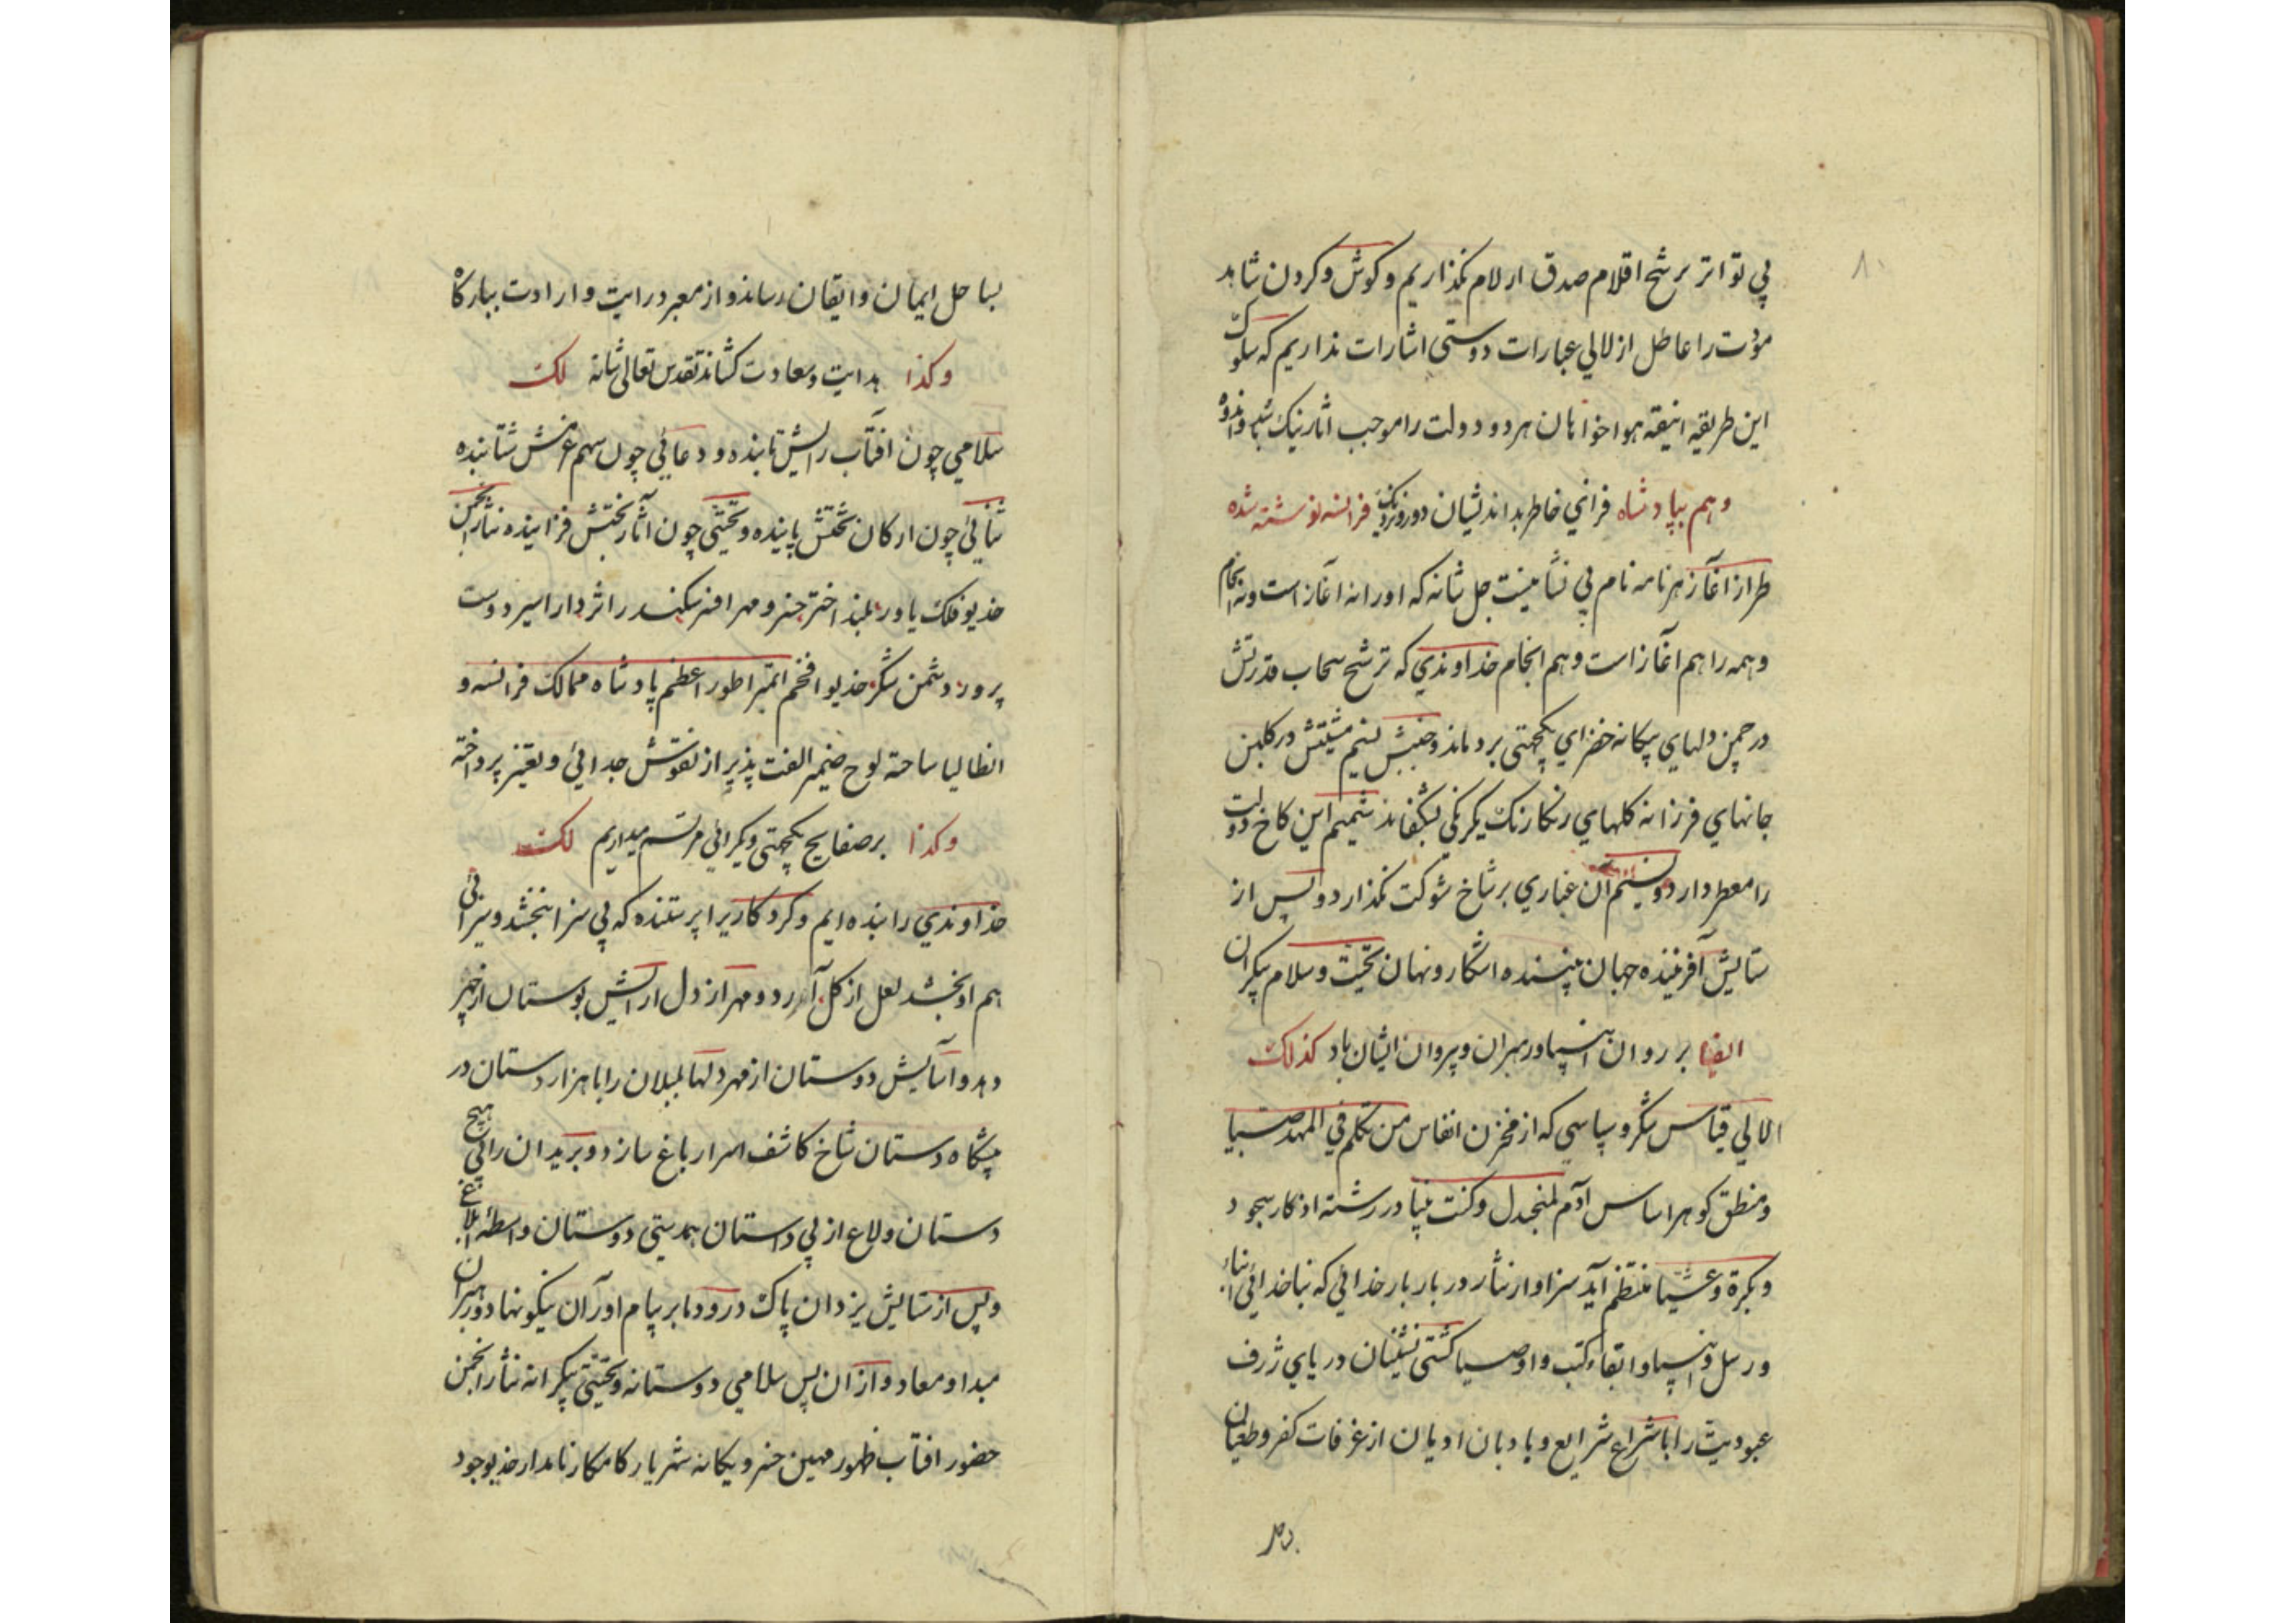 ۸۰
پی تواتر ترشح اقلام صدق ارلام نگذاریم و گوش و گردن شاهد
مودت را عاطل از لالی عبارات دوستی اشارات نداریم که سلوک
این طریقه انیقه هواخواهان هر دو دولت را موجب آثار نیک
وهم بپادشاه فراخی خاطر بداندیشان دور و نزدیک فرانسه نوشته شده
طراز آغاز هر نامه نام بی نشانیست جل شانه که او را نه آغاز است و نه انجام
و همه را هم آغاز است و هم انجام خداوندی که ترشح سحاب قدرتش
در چمن دلهای بیکانه خضرای یکجهتی بردماند و جنبش نسیم مشیتش در گلبن
جانهای فرزانه گلهای رنگارنگ یکرنگی بشکفاند شمیم این کاخ دولت
را معطر دارد و نسیم آن غباری بر شاخ شوکت نگذارد و پس از
ستایش آفریننده جهان بیننده اشکار و نهان تحیت و سلام بیکران
ایضا بر روان انبیا و رهبران و پیروان ایشان باد کذلک
لالی قیاس شکر و سپاسی که از مخزن انفاس من تکلم فی المهد صبیا
و منطق گوهر اساس آدم لمنجدل و کنت نبیا در رشته اذکار سجود
و بکرة و عشیا منتظم آید سزاوار نثار دربار بار خدائی که بناخدائی انباء
و رسل و انبیا و ابقاء کتب و اوصیا کشتی نشینان دریای ژرف
عبودیت را با شراع شرایع و بادبان ادیان از غرفات کفر و طغیان
بساحل ایمان و ایقان رساند و از معبر درایت و ارادت ببارگاه
وکذا هدایت و سعادت کشاند تقدس تعالی شانه لک
سلامی چون آفتاب رایش تابنده و دعائی چون سهم عزمش شتابنده
ثنائی چون ارکان تختش پاینده و تحیتی چون آثار بختش فزاینده نثار انجمن
خدیو فلک یاور بلند اختر خسرو مهر افسر سکندر اثر دارا سیر دوست
پرور دشمن شکر خدیو افخم ایمپراطور اعظم پادشاه ممالک فرانسه و
انطالیا ساخته لوح ضمیر الفت پذیر از نقوش جدائی و تغیر پرداخته
وکذا بر صفایح یکجهتی و یکرائی مرتسم میداریم لک
خداوندی را بنده ایم و کردکاریرا پرستنده که بی سزا نبخشد و سزائی
هم او بخشد لعل از گل آرد و مهر از دل ارایش بوستان از چهر
دهد و آسایش دوستان از مهر دلها بلبلان را با هزار دستان در
پیشگاه دستان شاخ کاشف اسرار باغ سازد و بریدان را بی هیچ
دستان ولاغ از پی داستان همدستی دوستان واسطه ابلاغ
و پس از ستایش یزدان پاک درودها بر پیام اوران نیکو نهاد و رهبران
مبدا و معاد و از ان پس سلامی دوستانه و تحیتی بیکرانه نثار انجمن
حضور افتاب ظهور مهین خسرو یکانه شهریار کامکار نامدار خدیو جود